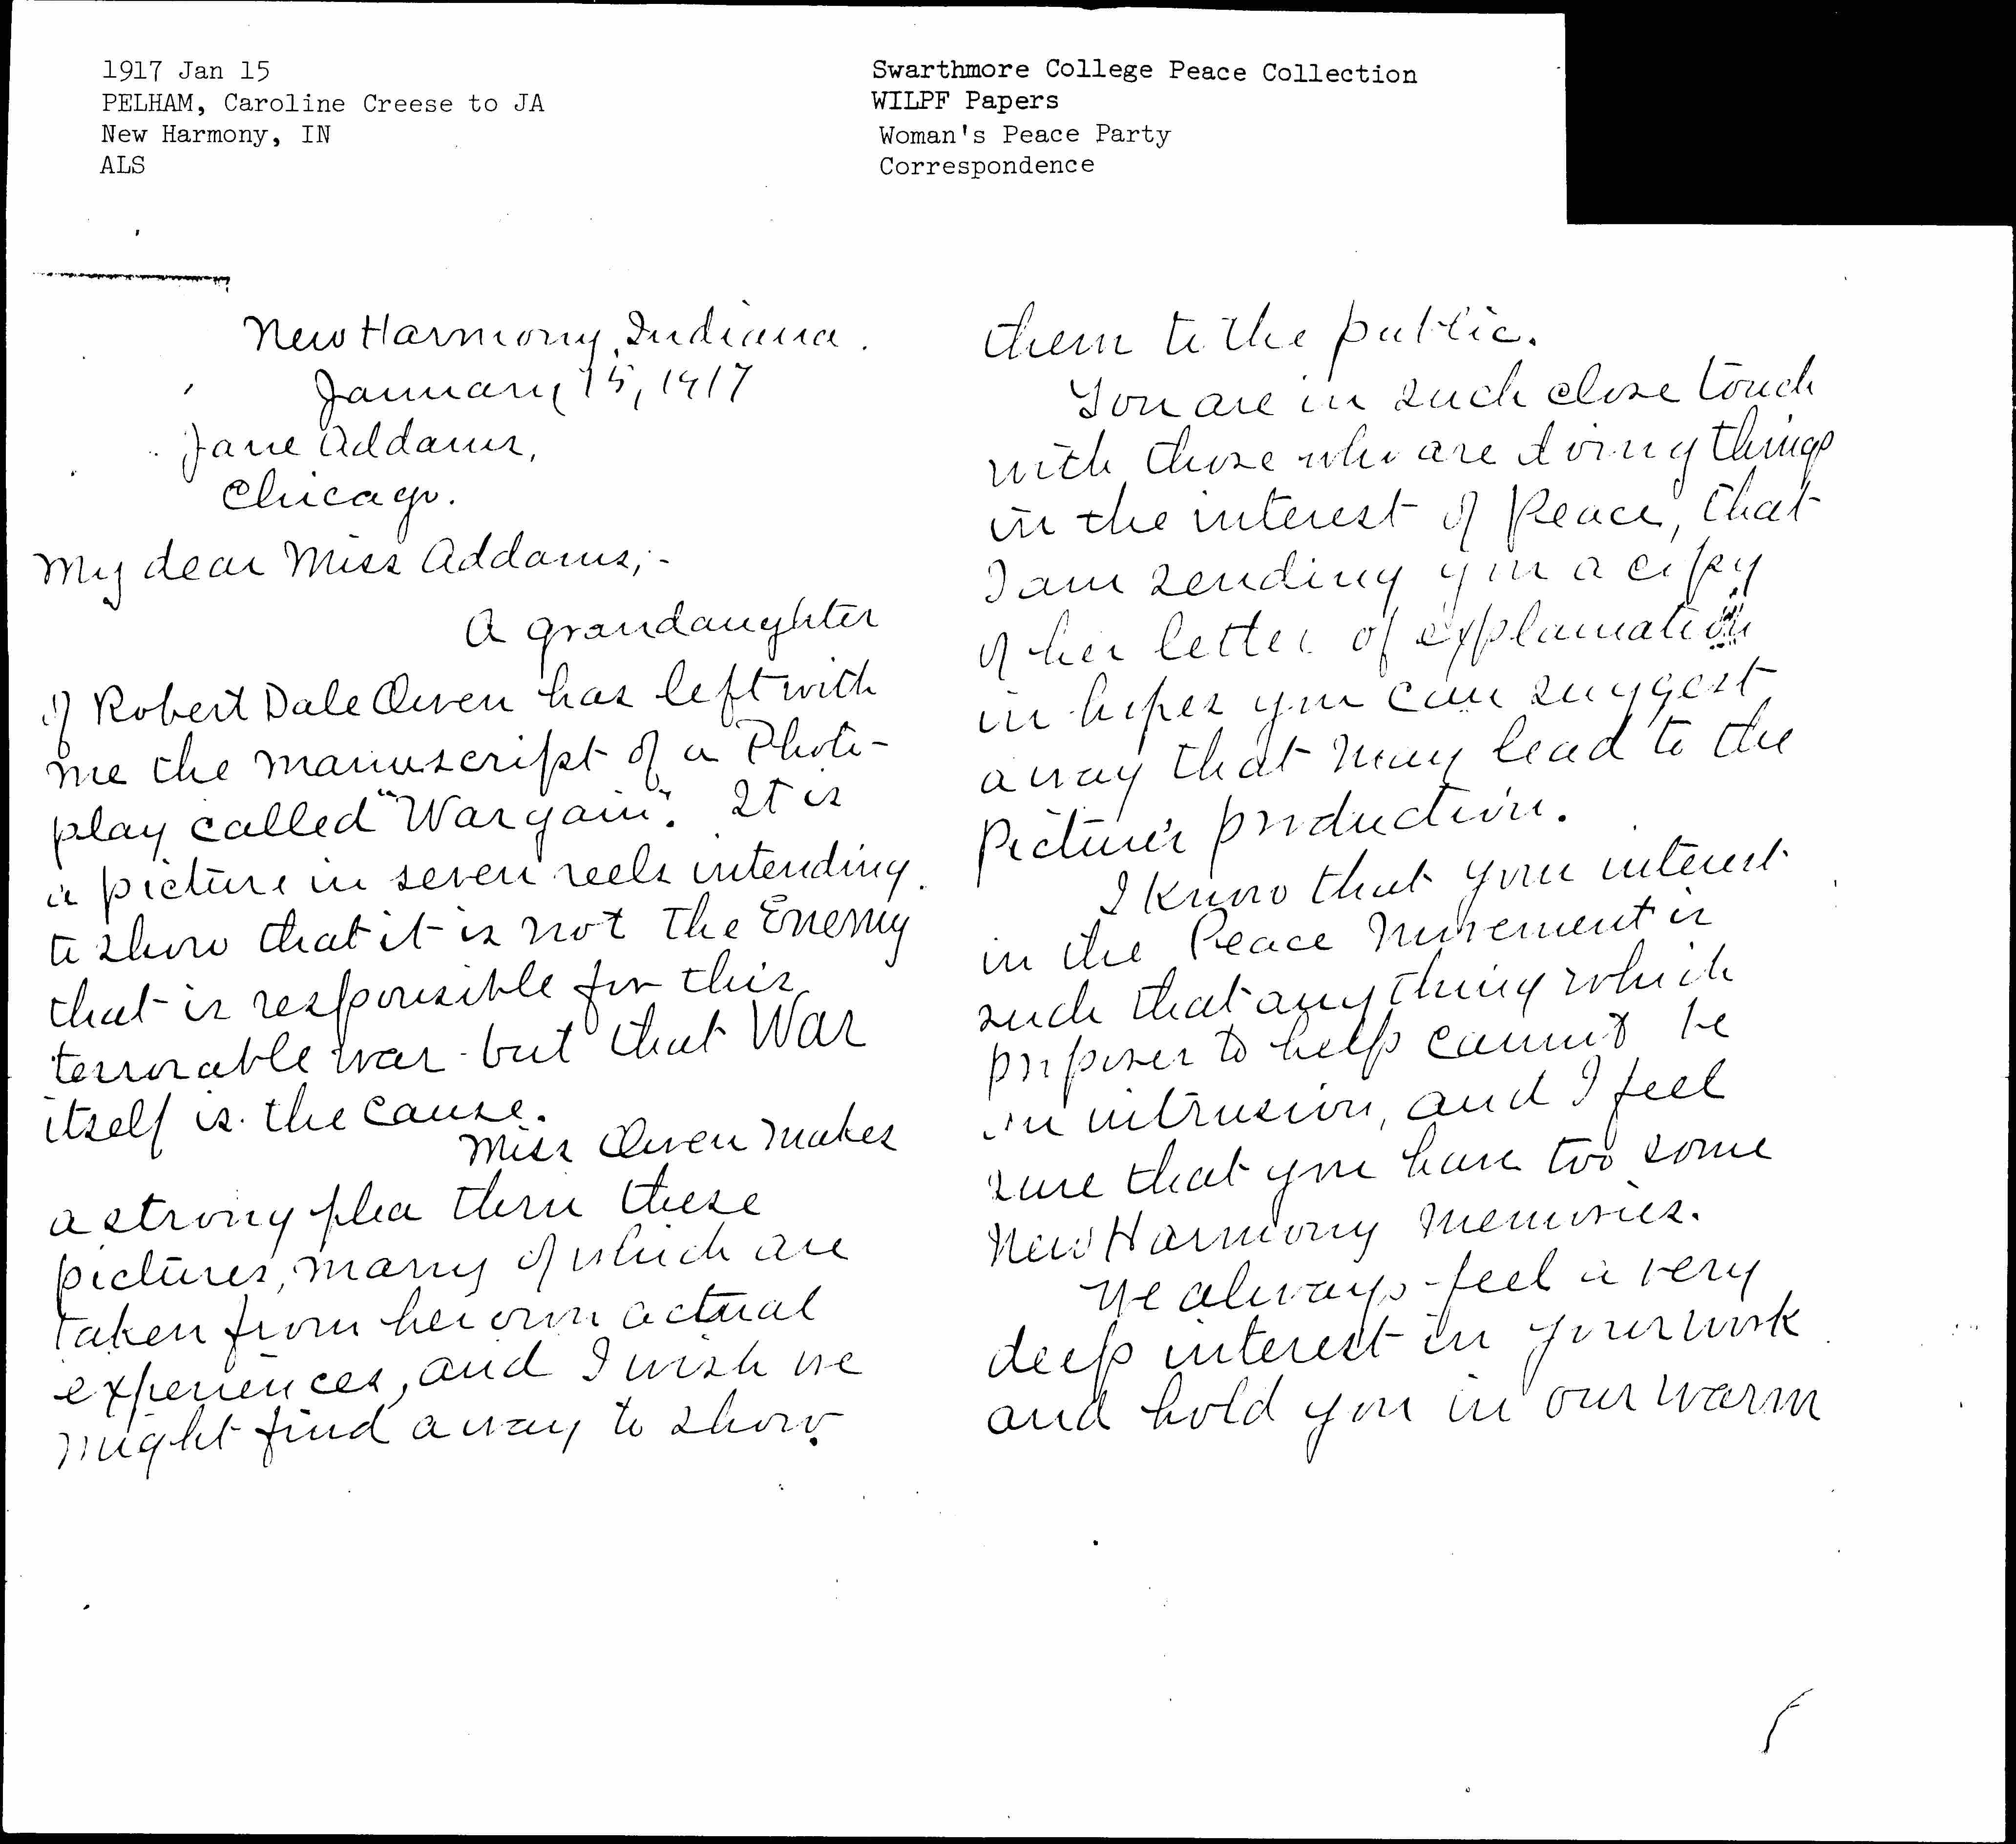 1917 Jan 15
PELHAM, Caroline Creese to JA
New Harmony, IN
ALS
Swarthmore College Peace Collection
WILPF Papers
Woman's Peace Party
Correspondence
New Harmony, Indiana.
January 15, 1917
Jane Addams,
Chicago.
My dear Miss Addams;-
A grandaughter
of Robert Dale Owen has left with
me the manuscript of a Photo-
play called "War gain". It is
a picture in seven reels intending
to show that it is not The Enemy
that is responsible for this
terrorable war - but that War
itself is the cause.
Miss Owen makes
a strong plea thru these
pictures, many of which are
taken from her own actual
experiences, and I wish we
might find a way to show
them to the public.
You are in such close touch
with those who are doing things
in the interest of Peace, that
I am sending you a copy
of her letter of explanation
in hopes you can suggest
a way that may lead to the
Picture's production.
I know that your interest
in the Peace Movement is
such that anything which
proposes to help cannot be
an intrusion, and I feel
sure that you have too some
New Harmony memories.
We always feel a very
deep interest in your work
and hold you in our warm